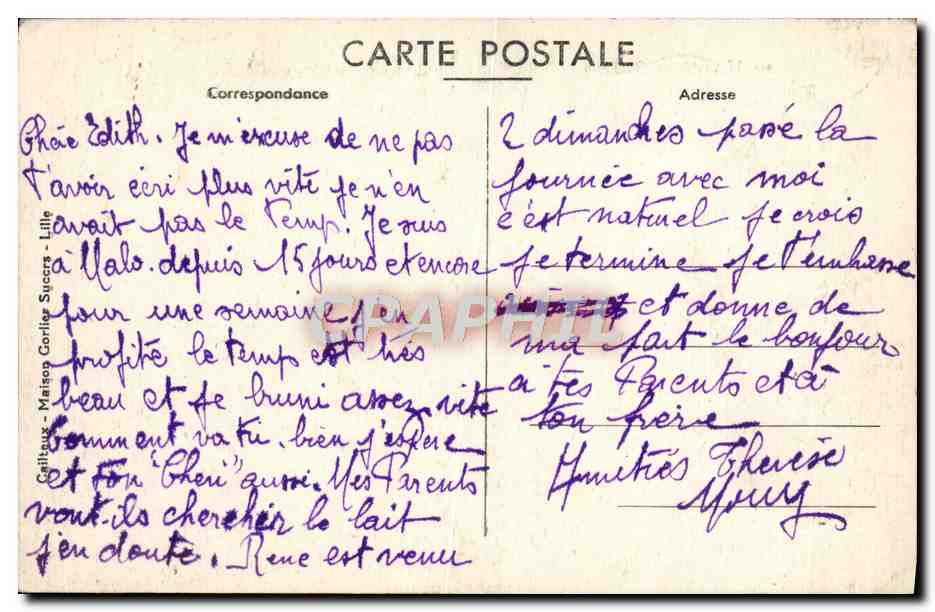 CARTE POSTALE
Correspondance
Chère Edith. Je m'excuse de ne pas
t'avoir écri plus vite je n'en
avait pas le temp. Je suis
à Malo. depuis 15 jours et encore
pour une semaine j'en
profite le temp est très
beau et je bruni assez vite
Comment va tu. bien j'espere
et ton "Cheri" aussi. Mes Parents
vont-ils chercher le lait
j'en doute. René est venu
Adresse
2 dimanches passé la
journée avec moi
c'est naturel je crois
je termine je t'embrasse
et donne de
ma part le bonjour
à tes Parents et à
ton frère
Amitiés Therèse
Cailteux - Maison Gorlier Succrs - Lille
CPAPHIL